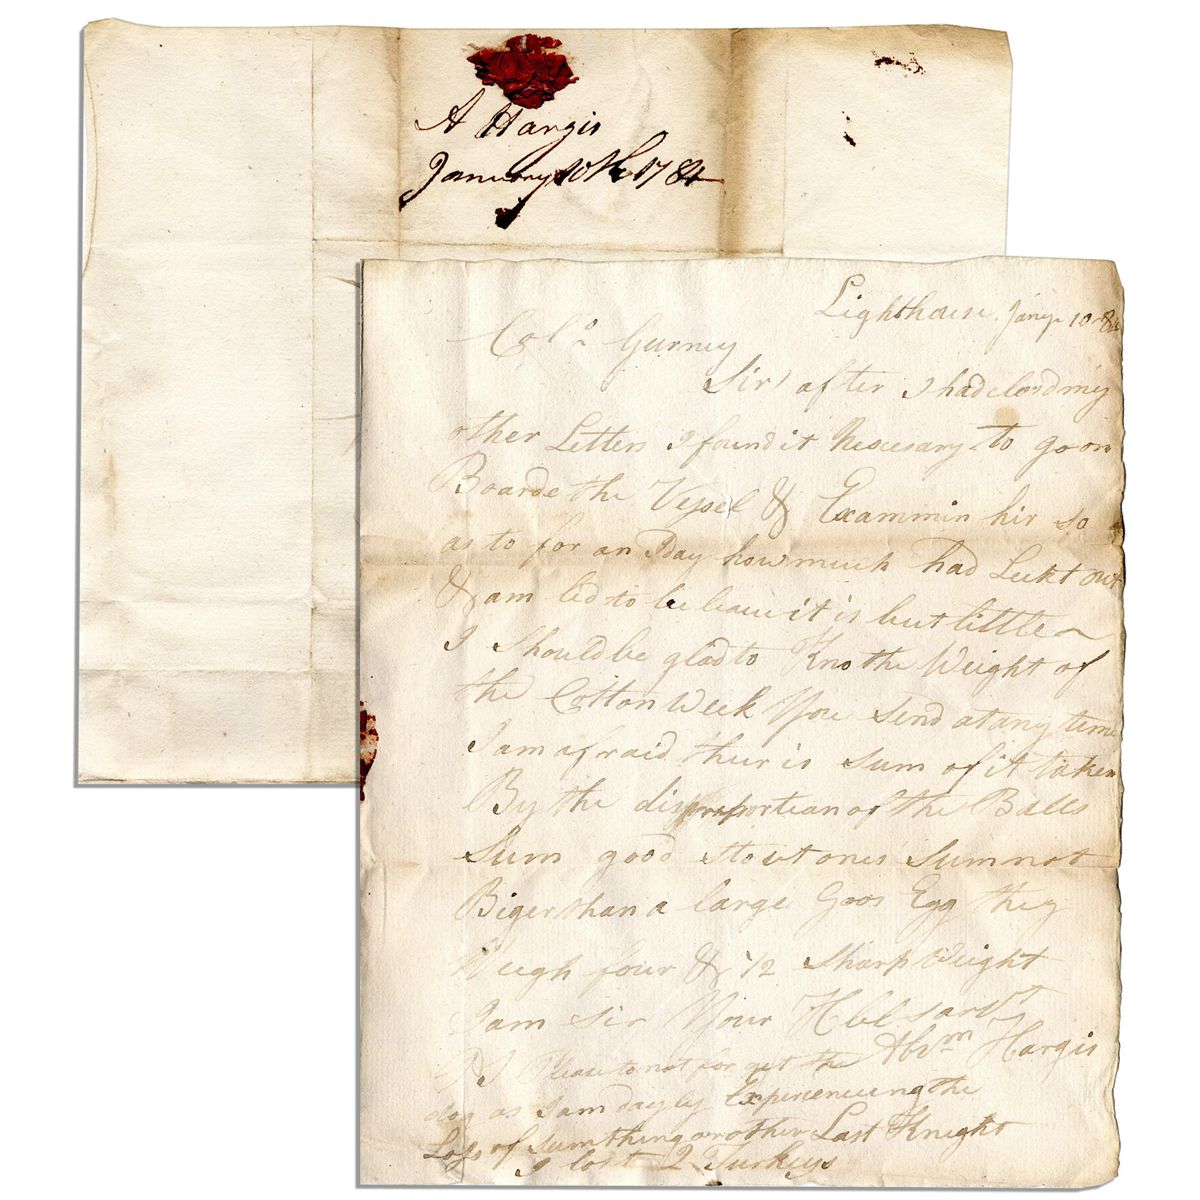 A Hargis
January 10th 1784
Lighthouse Jany 10 84
Colo Gurney
Sir after I had closd my
other Letters I found it Nesecesary to go on
Boarde the Vessel & Exammin hir so
as to for an Iday how much had Leekt out
& am led to beleave it is but little
I should be glad to Kno the Weight of
the Cotton Week You Send at any time
I am afraid thur is sum of it taken
By the disproportian of the Balls
Sum good stout ones Sum not
Biger than a large Goos Egg they
Weigh four & 1/2 Sharp Weight
I am Sir Your Hbl sarvt
Abrm Hargis
PS Please to not for get the
dog as I am dayly Experienceing the
Loss of Sumthing or other Last Knight
I lost 2 Turkeys